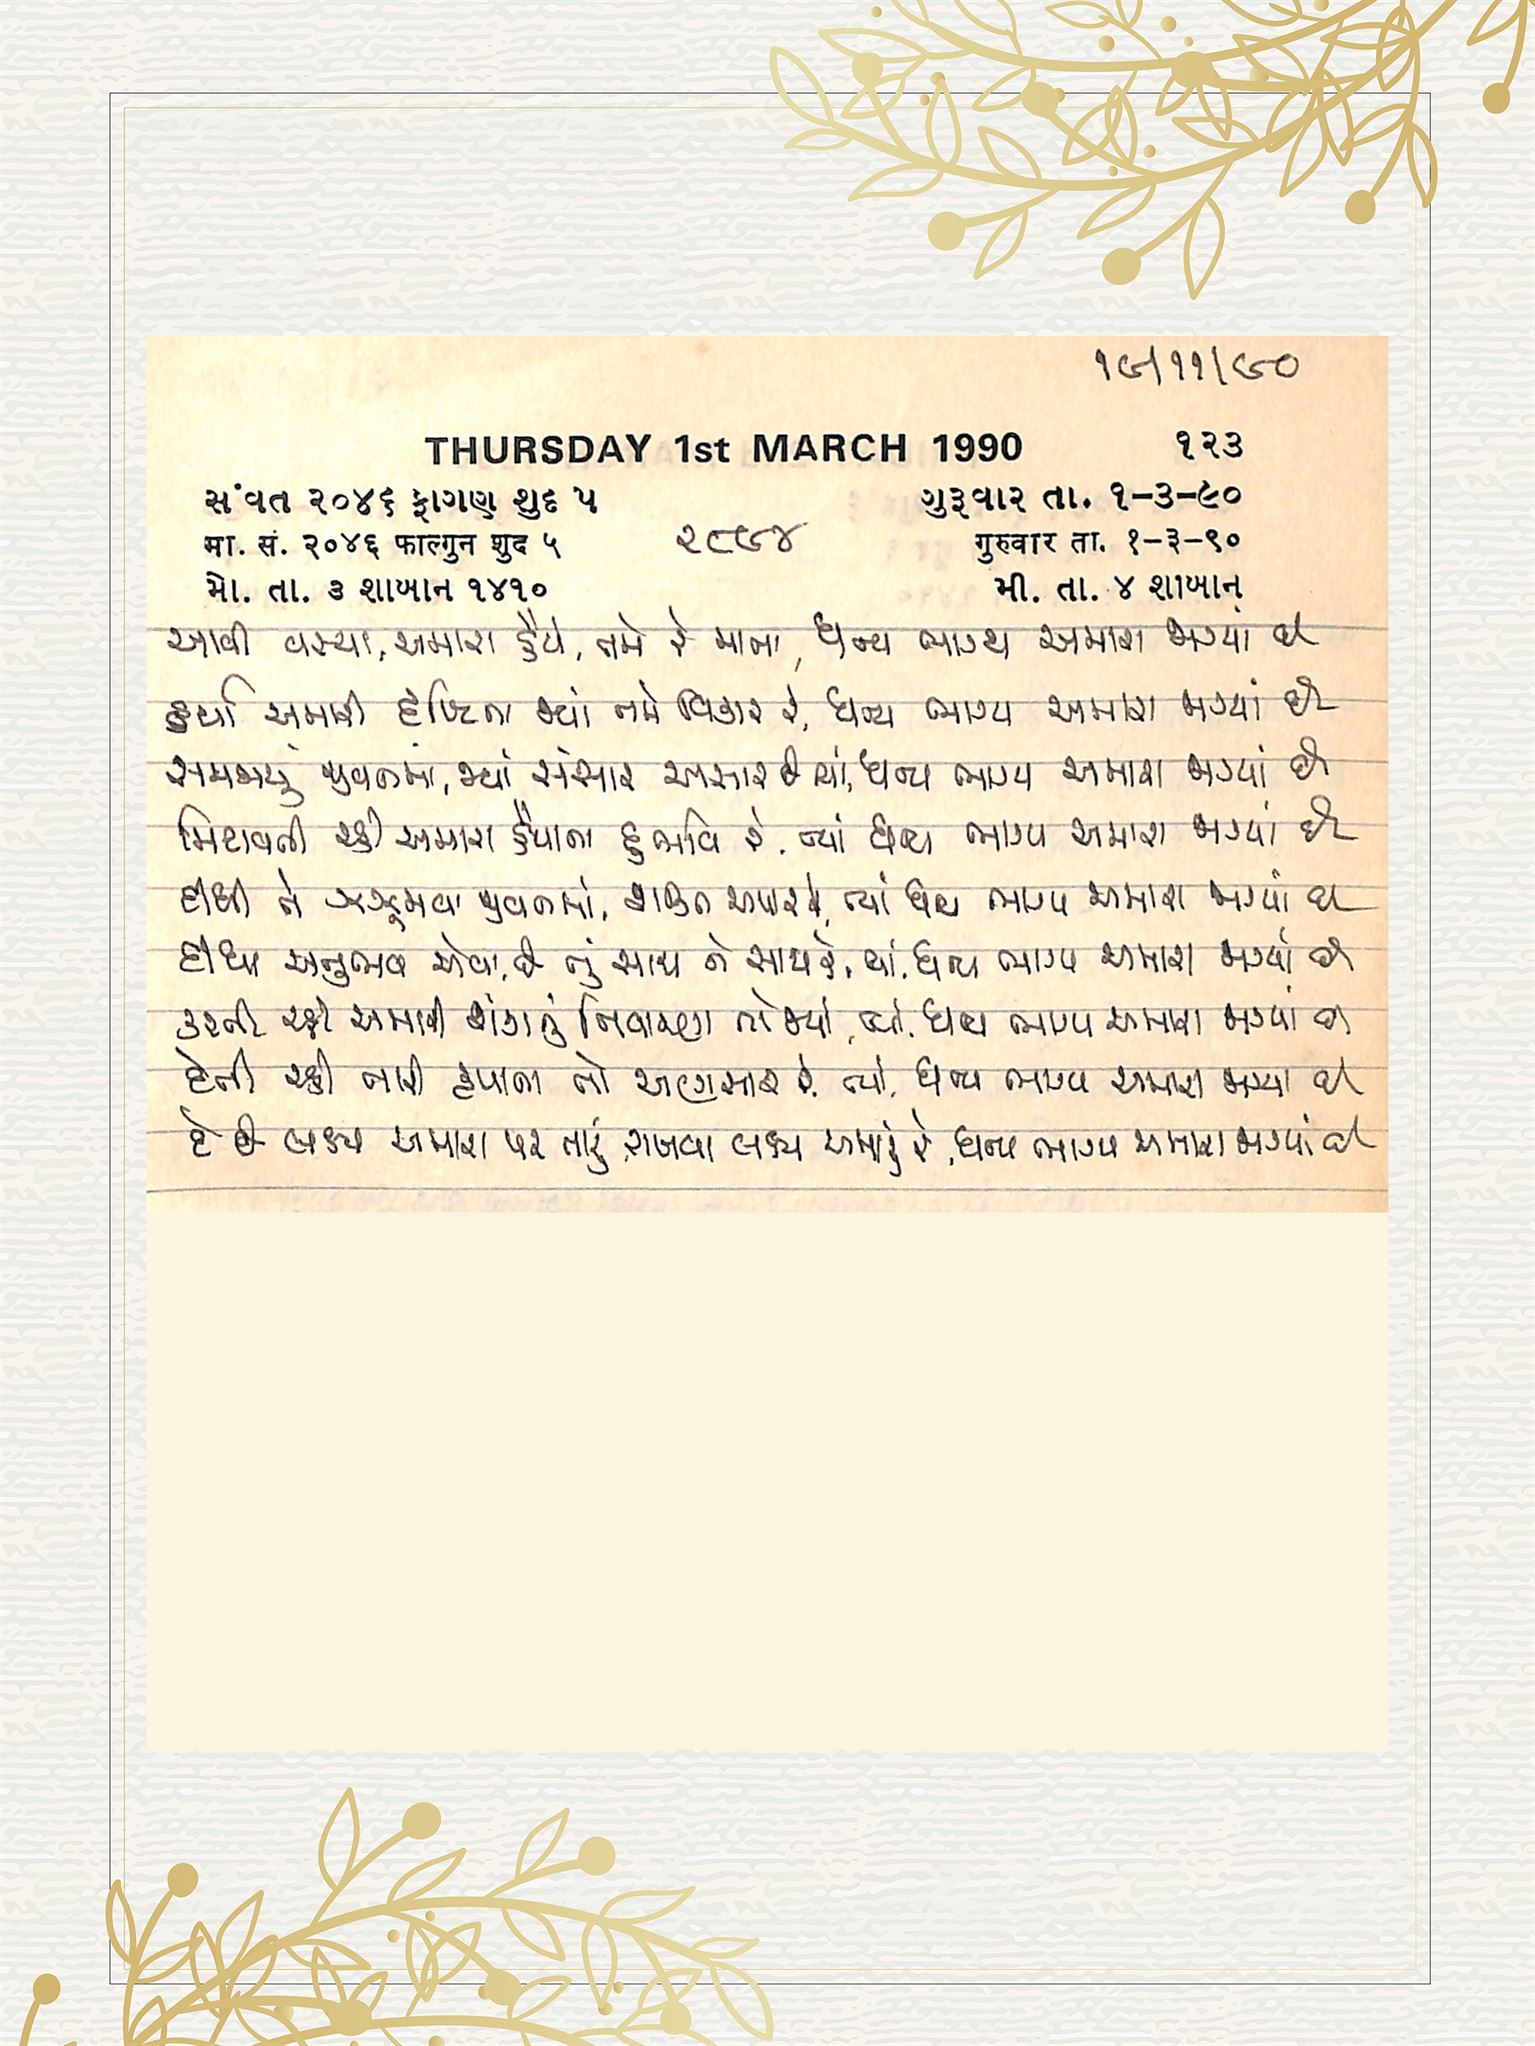 ૧૯/૧૧/૯૦
THURSDAY 1st MARCH 1990 ૧૨૩
સંવત ૨૦૪૬ ફાગણ શુદ ૫ ગુરૂવાર તા. ૧-૩-૯૦
मा. सं. २०४६ फाल्गुन शुद ५ ૨૮૯૪ गुरुवार ता. १-३-९०
મો. તા. ૩ શાબાન ૧૪૧૦ મી. તા. ૪ શાબાન
આવી વસ્યા, અમારા હૈયે, તમે રે માતા, ધન્ય ભાગ્ય અમારા જાગ્યાં છે
હર્યા અમારી દૃષ્ટિના જ્યાં તમે વિકાર રે, ધન્ય ભાગ્ય અમારા જાગ્યાં છે
સમજાયું જીવનમાં, જ્યાં સંસાર અસાર છે ત્યાં, ધન્ય ભાગ્ય અમારા જાગ્યાં છે
મિટાવતી રહી અમારા હૈયાના દુર્ભાવ રે, ત્યાં ધન્ય ભાગ્ય અમારા જાગ્યાં છે
દીધી તેં ઝઝૂમવા જીવનમાં, શક્તિ અપાર રે, ત્યાં ધન્ય ભાગ્ય અમારા જાગ્યાં છે
દીધા અનુભવ એવા, છે તું સાથ ને સાથ રે, ત્યાં, ધન્ય ભાગ્ય અમારા જાગ્યાં છે
કરતી રહી અમારી શંકાનું નિવારણ તો જ્યાં, ત્યાં, ધન્ય ભાગ્ય અમારા જાગ્યાં છે
દેતી રહી તારી કૃપાના તો અણસાર રે, ત્યાં, ધન્ય ભાગ્ય અમારા જાગ્યાં છે
દે છે લક્ષ્ય અમારા પર તારું, રાખવા લક્ષ્ય અમારું રે, ધન્ય ભાગ્ય અમારા જાગ્યાં છે